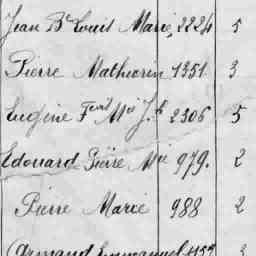 Jean Bte Louis Marie, 2224 5
Pierre Mathurin 1351 3
Eugène Ferd Mie J.h 2306 5
Edouard Pierre Mie 979. 2
Pierre Marie 988 2
Armand Emmanuel 1159 3